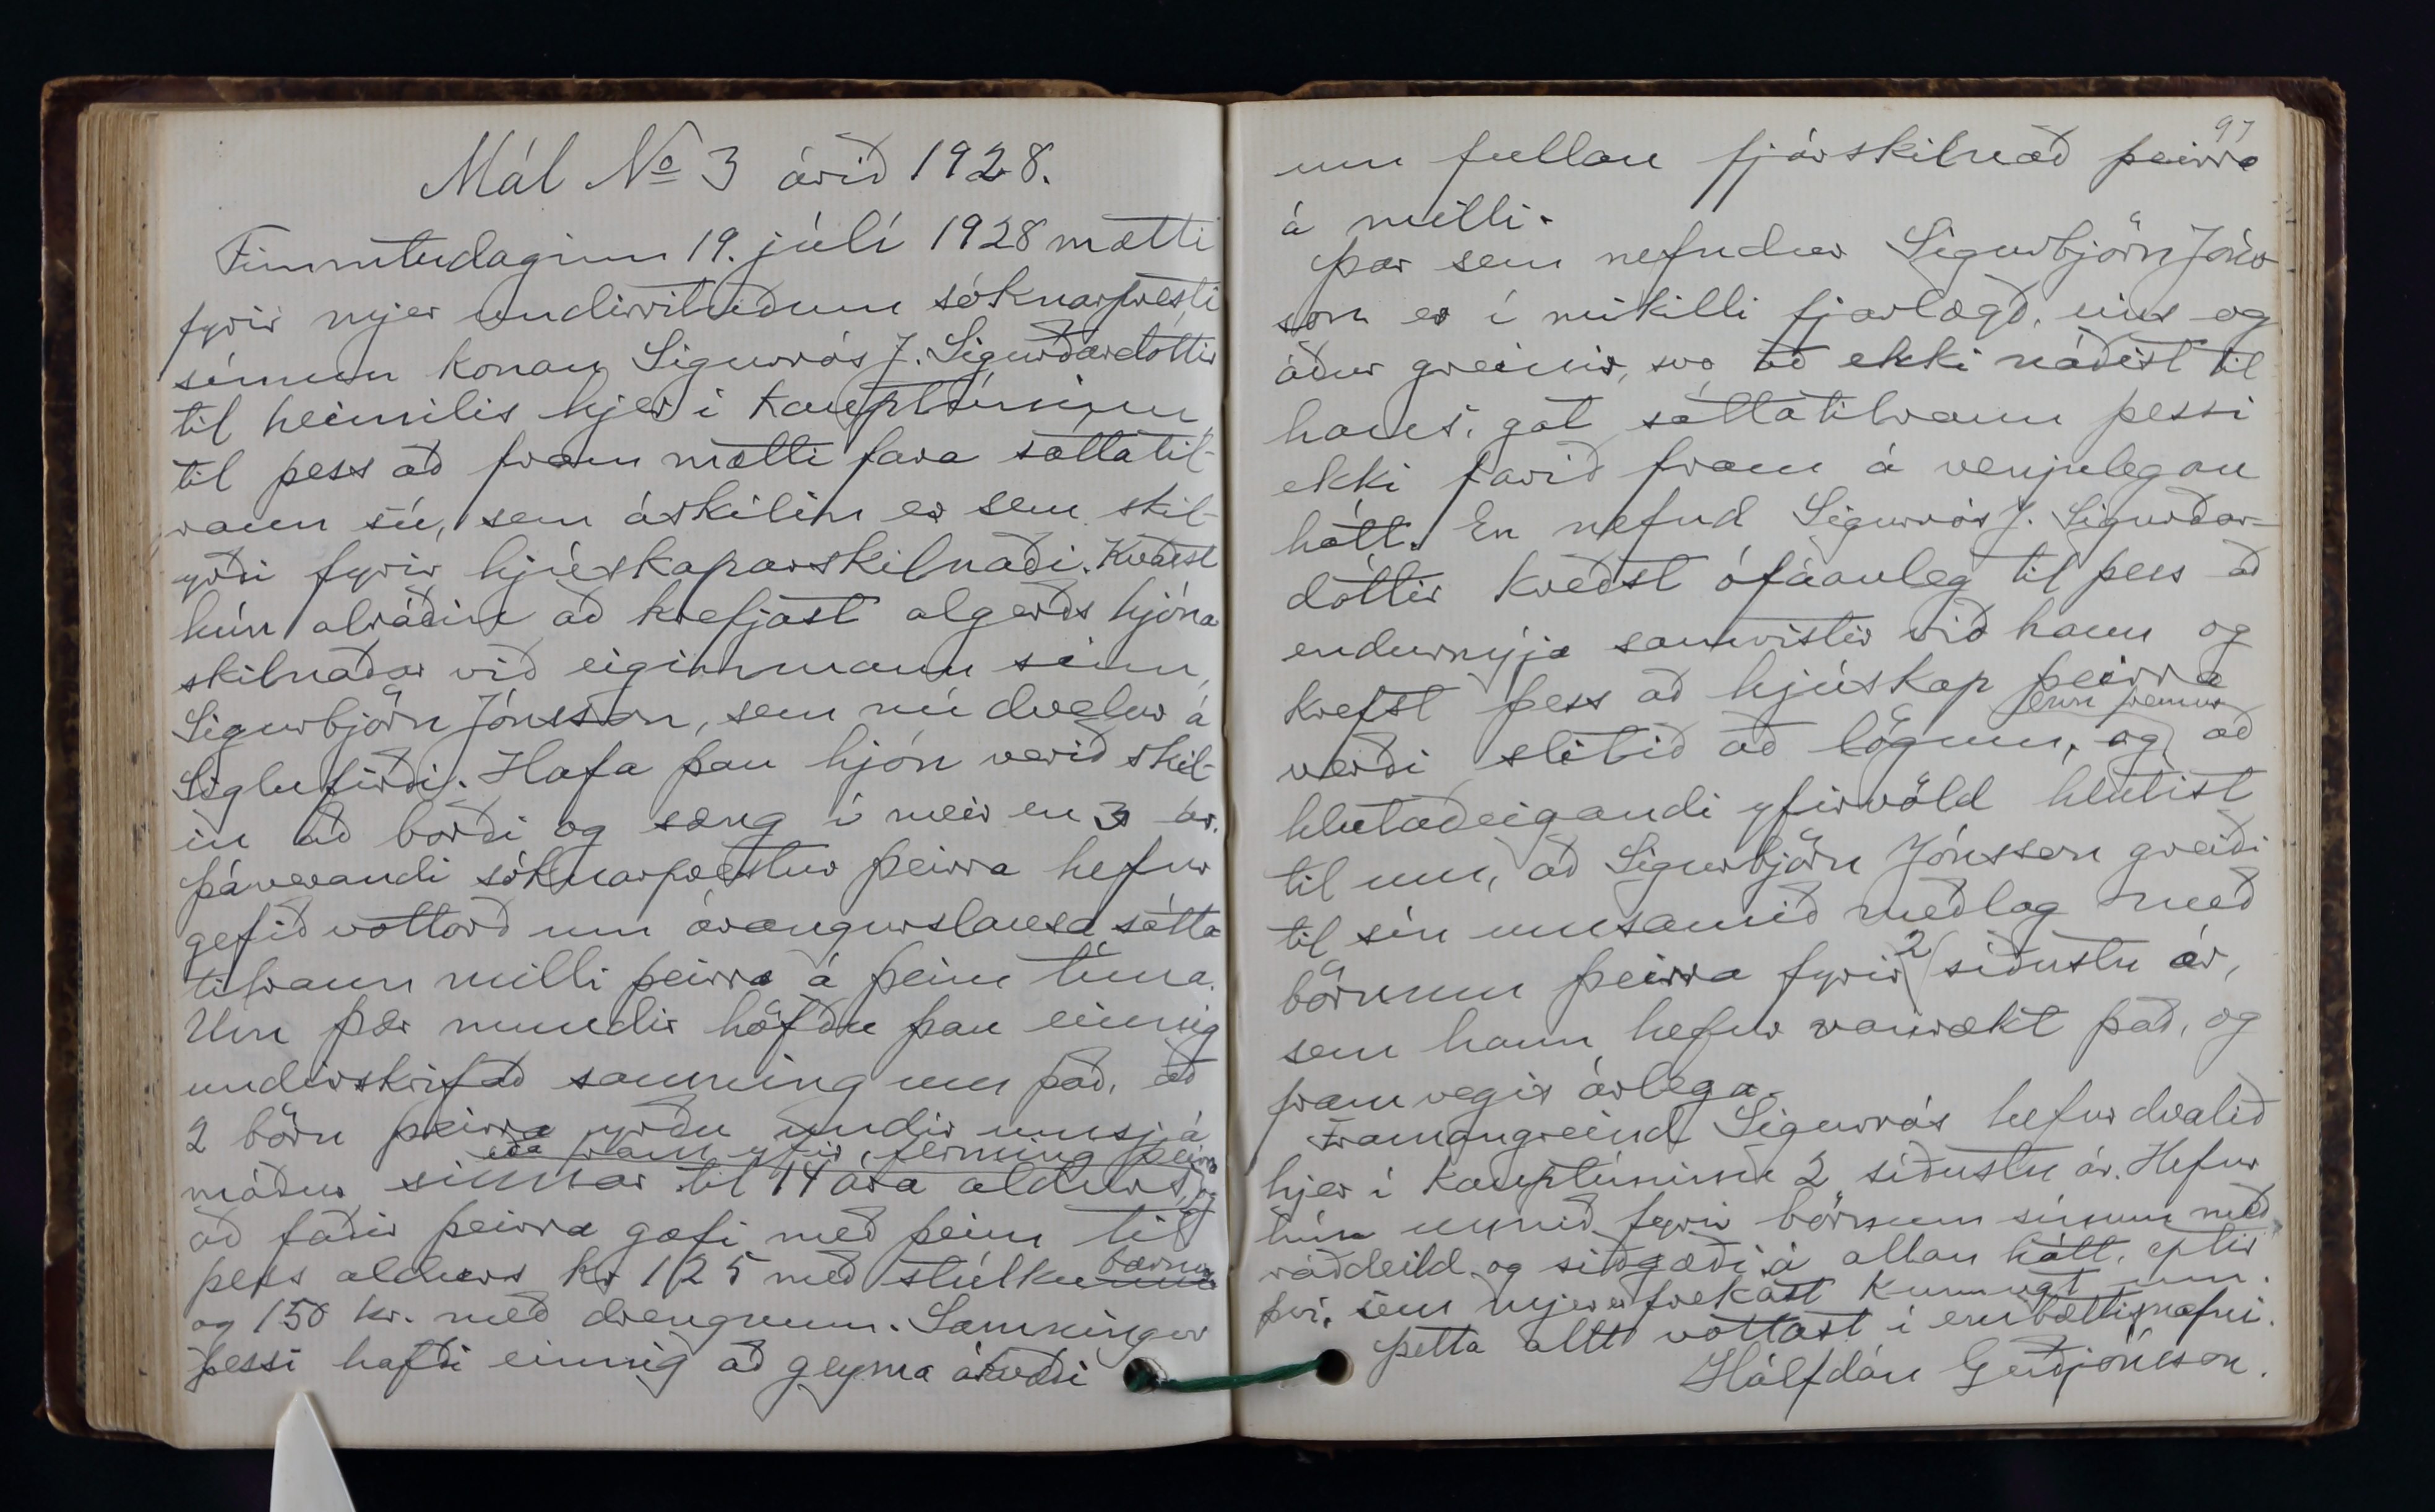 Mál No 3 árið 1928.
Fimmtudaginn 19. júlí 1928 mætti
fyrir mjer undirrituðum sóknarpresti
sínum konan Sigurrós J. Sigurðardóttir
til heimilis hjer í kauptúninu
til þess að fram mætti fara sáttatil-
raun sú, sem áskilin er sem skil-
yrði fyrir hjúskaparskilnaði. Kveðst
hún alráðin að krefjast algerðs hjóna
skilnaðar við eiginmann sinn,
Sigurbjörn Jónsson, sem nú dvelur á
Siglufirði. Hafa þau hjón verið skil-
in að borði og sæng í meir en 3 ár.
Þáverandi sóknarprestur þeirra hefur
gefið vottorð um árangurslausa sátta
tilraun milli þeirra á þeim tíma.
Um þær mundir höfðu þau einnig
undirskrifað samning um það, að
2 börn þeirra yrðu undir umsjá
eða fram yfir ferming þeirra
móður sinnar til 14 ára aldurs, og
að faðir þeirra gæfi með þeim til
þess aldurs kr 125 með stúlkubarninu
og 150 kr. með drengnum. Samningur
þessi hafði einnig að geyma ákvæði
97
um fullan fjárskilnað þeirra
á milli.
Þar sem nefndur Sigurbjörn Jóns
son er í mikilli fjarlægð, eins og
áður greinir, svo að ekki náðist til
hans, gat sáttatilraun þessi
ekki farið fram á venjulegan
hátt. En nefnd Sigurrós J. Sigurðar-
dóttir kveðst ófáanleg til þess að
endurnýja samvistir við hann og
krefst þess að hjúskap þeirra
enn fremur
verði slitið að lögum, og að
hlutaðeigandi yfirvöld hlutist
til um, að Sigurbjörn Jónsson greiði
til sín umsamið meðlag með
börnum þeirra fyrir 2 síðustu ár,
sem hann hefur vanrækt það, og
framvegis árlega.
Framangreind Sigurrós hefur dvalið
hjer í kauptúninu 2 síðustu ár. Hefur
hún unnið fyrir börnum sínum með
ráðdeild og siðgæði á allan hátt, eptir
því, sem mjer er frekast kunnugt um.
Þetta allt vottast í embættisnafni.
Hálfdán Guðjónsson.